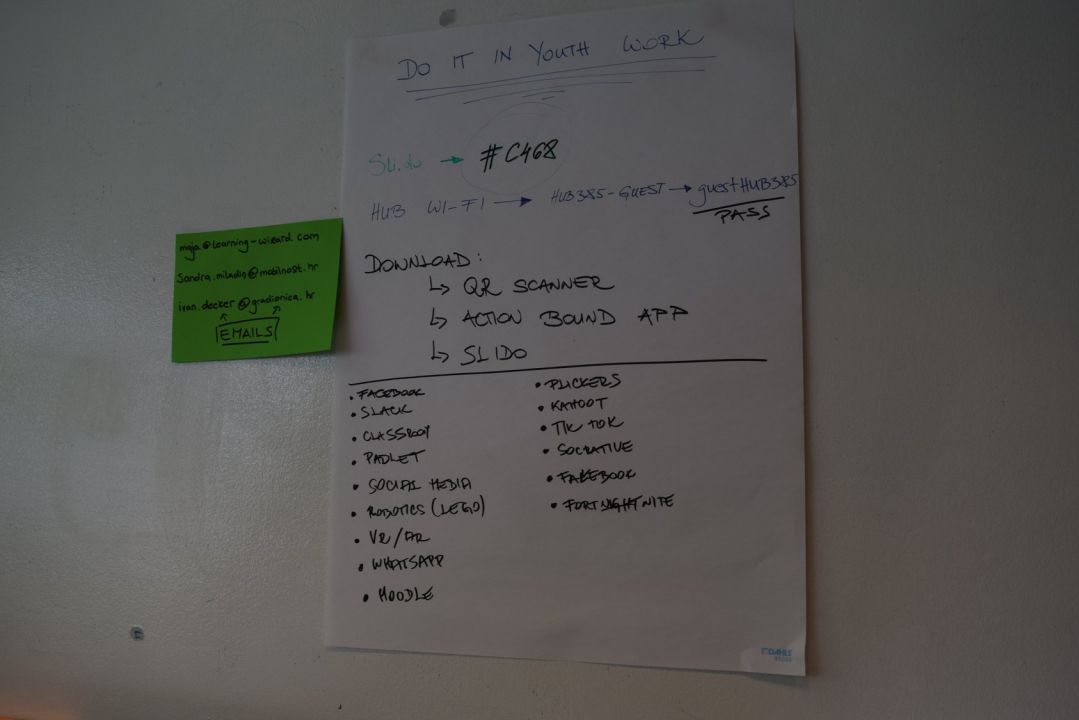 DO IT IN YOUTH WORK
Sli.do → #C468
HUB WI-FI → HUB385-GUEST → guestHUB385
PASS
maja@learning-wizard.com
Sandra.miladin@mobilnost.hr
ivan.decker@gradionica.hr
EMAILS
DOWNLOAD:
↳ QR SCANNER
↳ ACTION BOUND APP
↳ SLIDO
• FACEBOOK
• SLACK
• CLASSROOM
• PADLET
• SOCIAL MEDIA
• ROBOTICS (LEGO)
• VR/AR
• WHATSAPP
• MOODLE
• PLICKERS
• KAHOOT
• TIK TOK
• SOCRATIVE
• FAKEBOOK
• FORTNITE
DAHLE